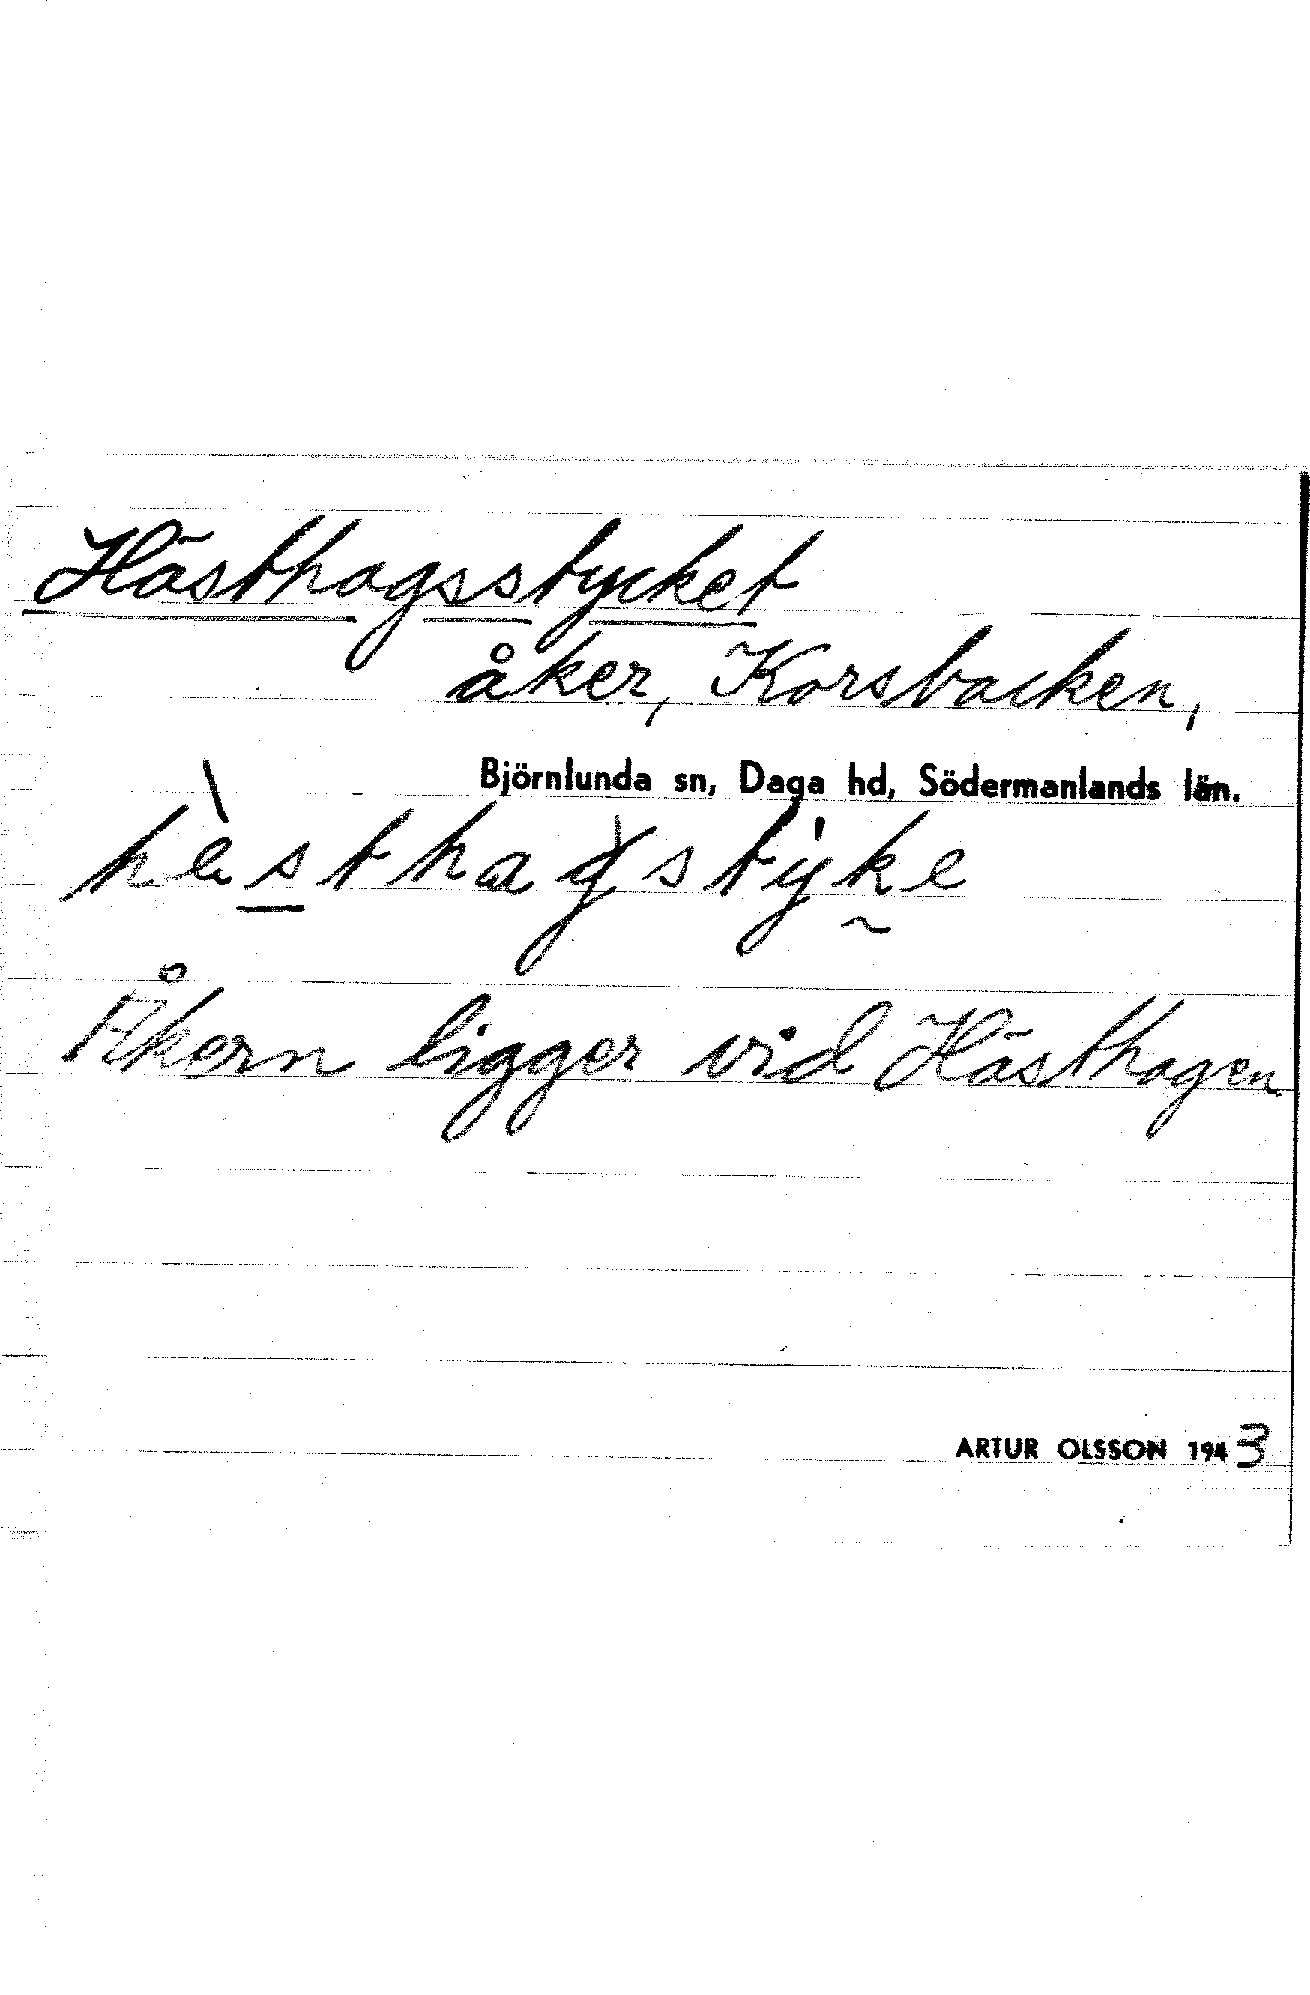 Hästhagsstycket
åker, Korsbacken,
Björnlunda sn, Daga hd, Södermanlands län.
hèsthagstyke
Åkern ligger vid Hästhagen
ARTUR OLSSON 1943